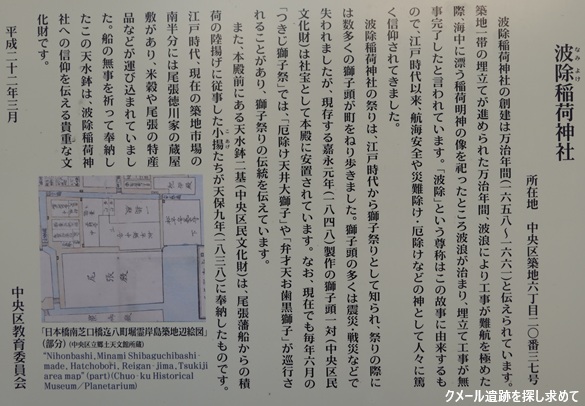 波除稲荷神社
なみよけ
所在地　中央区築地六丁目二〇番三七号
波除稲荷神社の創建は万治年間（一六五八〜一六六一）と伝えられています。
築地一帯の埋立てが進められた万治年間、波浪により工事が難航を極めた
際、海中に漂う稲荷明神の像を祀ったところ波浪が治まり、埋立て工事が無
事完了したと言われています。「波除」という尊称はこの故事に由来するも
ので、江戸時代以来、航海安全や災難除け・厄除けなどの神として人々に篤
く信仰されてきました。
波除稲荷神社の祭りは、江戸時代から獅子祭りとして知られ、祭りの際に
は数多くの獅子頭が町をねり歩きました。獅子頭の多くは震災・戦災などで
失われましたが、現存する嘉永元年（一八四八）製作の獅子頭一対（中央区民
文化財）は社宝として本殿に安置されています。なお、現在でも毎年六月の
「つきじ獅子祭」では、「厄除け天井大獅子」や「弁才天お歯黒獅子」が巡行さ
れることがあり、獅子祭りの伝統を伝えています。
また、本殿前にある天水鉢二基（中央区民文化財）は、尾張藩船からの積
荷の陸揚げに従事した小揚たちが天保九年（一八三八）に奉納したものです。
こあげ
江戸時代、現在の築地市場の
南半分には尾張徳川家の蔵屋
敷があり、米穀や尾張の特産
品などが運び込まれていまし
た。船の無事を祈って奉納し
たこの天水鉢は、波除稲荷神
社への信仰を伝える貴重な文
化財です。
平成二十二年三月
中央区教育委員会
尾張殿
「日本橋南芝口橋迄八町堀霊岸島築地辺絵図」
（部分）（中央区立郷土天文館所蔵）
"Nihonbashi,Minami Shibaguchibashi-
made, Hatchobori, Reigan-jima,Tsukiji
area map" (part)(Chuo-ku Historical
Museum／Planetarium)
クメール遺跡を探し求めて